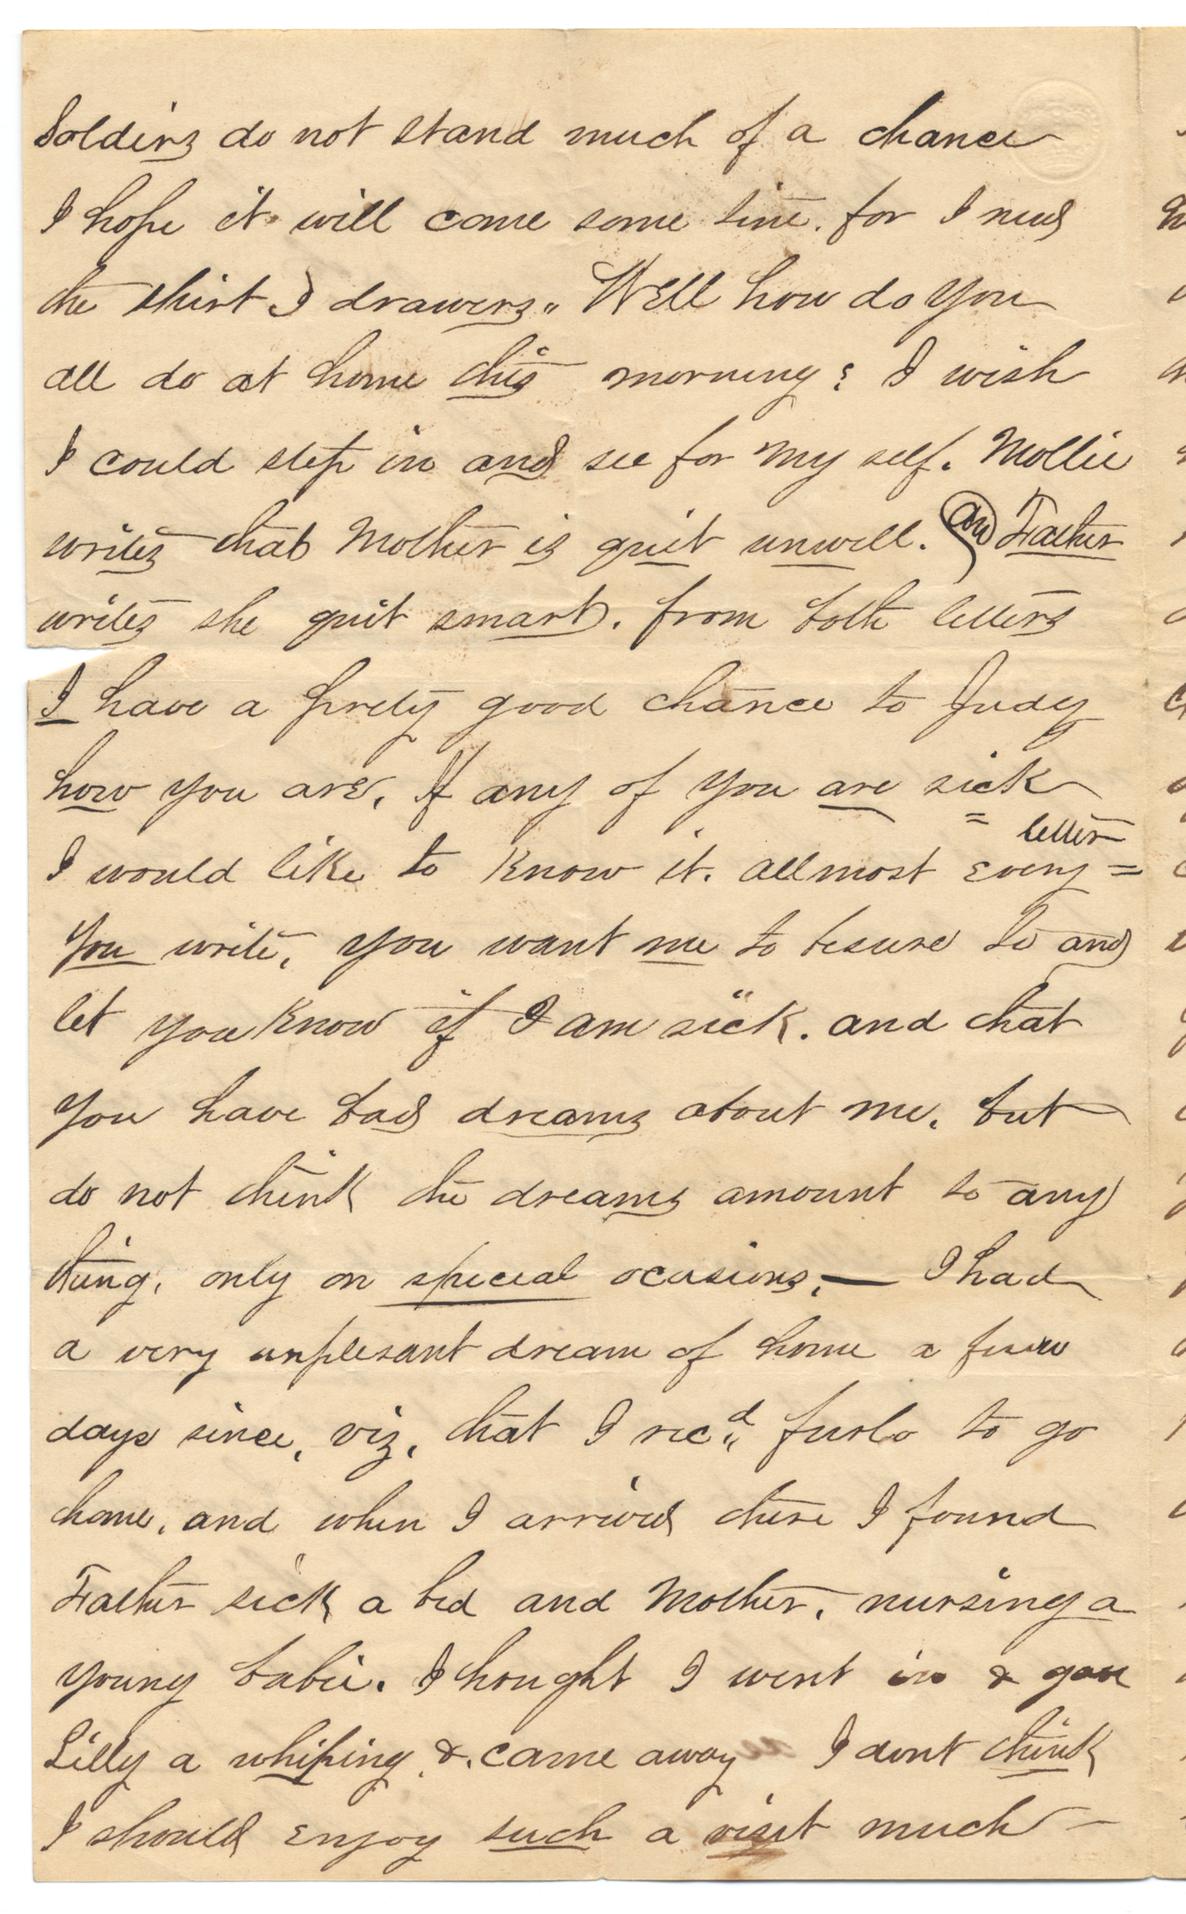 Soldiers do not stand much of a chance
I hope it will come some time. for I need
the shirt & drawers. Well how do you
all do at home this morning? I wish
I could step in and see for my self. Mollie
writes that Mother is quit unwell. an Father
writes she quit smart. from both letters
I have a prety good chance to Judg
how you are. If any of you are sick
I would like to know it. allmost every = letter
you write, you want me to besure to and
let you know if I am sick. and that
you have bad dreams about me. but
do not think the dreams amount to any
thing, only on special ocasions, — I had
a very unplesant dream of home a few
days since, viz, that I recd furlo to go
home, and when I arrived there I found
Father sick a bed and Mother, nursing a
young babie. I thought I went in & gave
Lilly a whiping & came away I dont think
I should enjoy such a visit much —